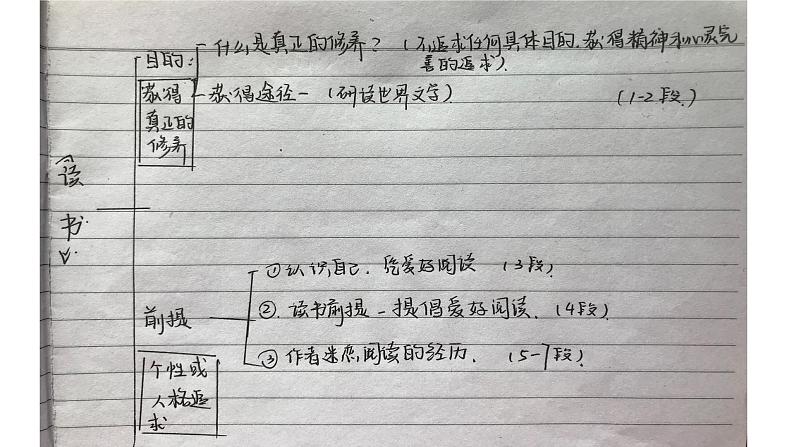 目的:
什么是真正的修养?(不追求任何具体目的.获得精神和心灵完善的追求).
获得真正的修养
获得途径-(研读世界文学)
(1-2段.)
《读书》
前提
①认识自己. 凭爱好阅读 (3段)
②.读书前提-提倡爱好阅读.(4段)
③作者迷恋阅读的经历.(5-7段)
个性或人格追求